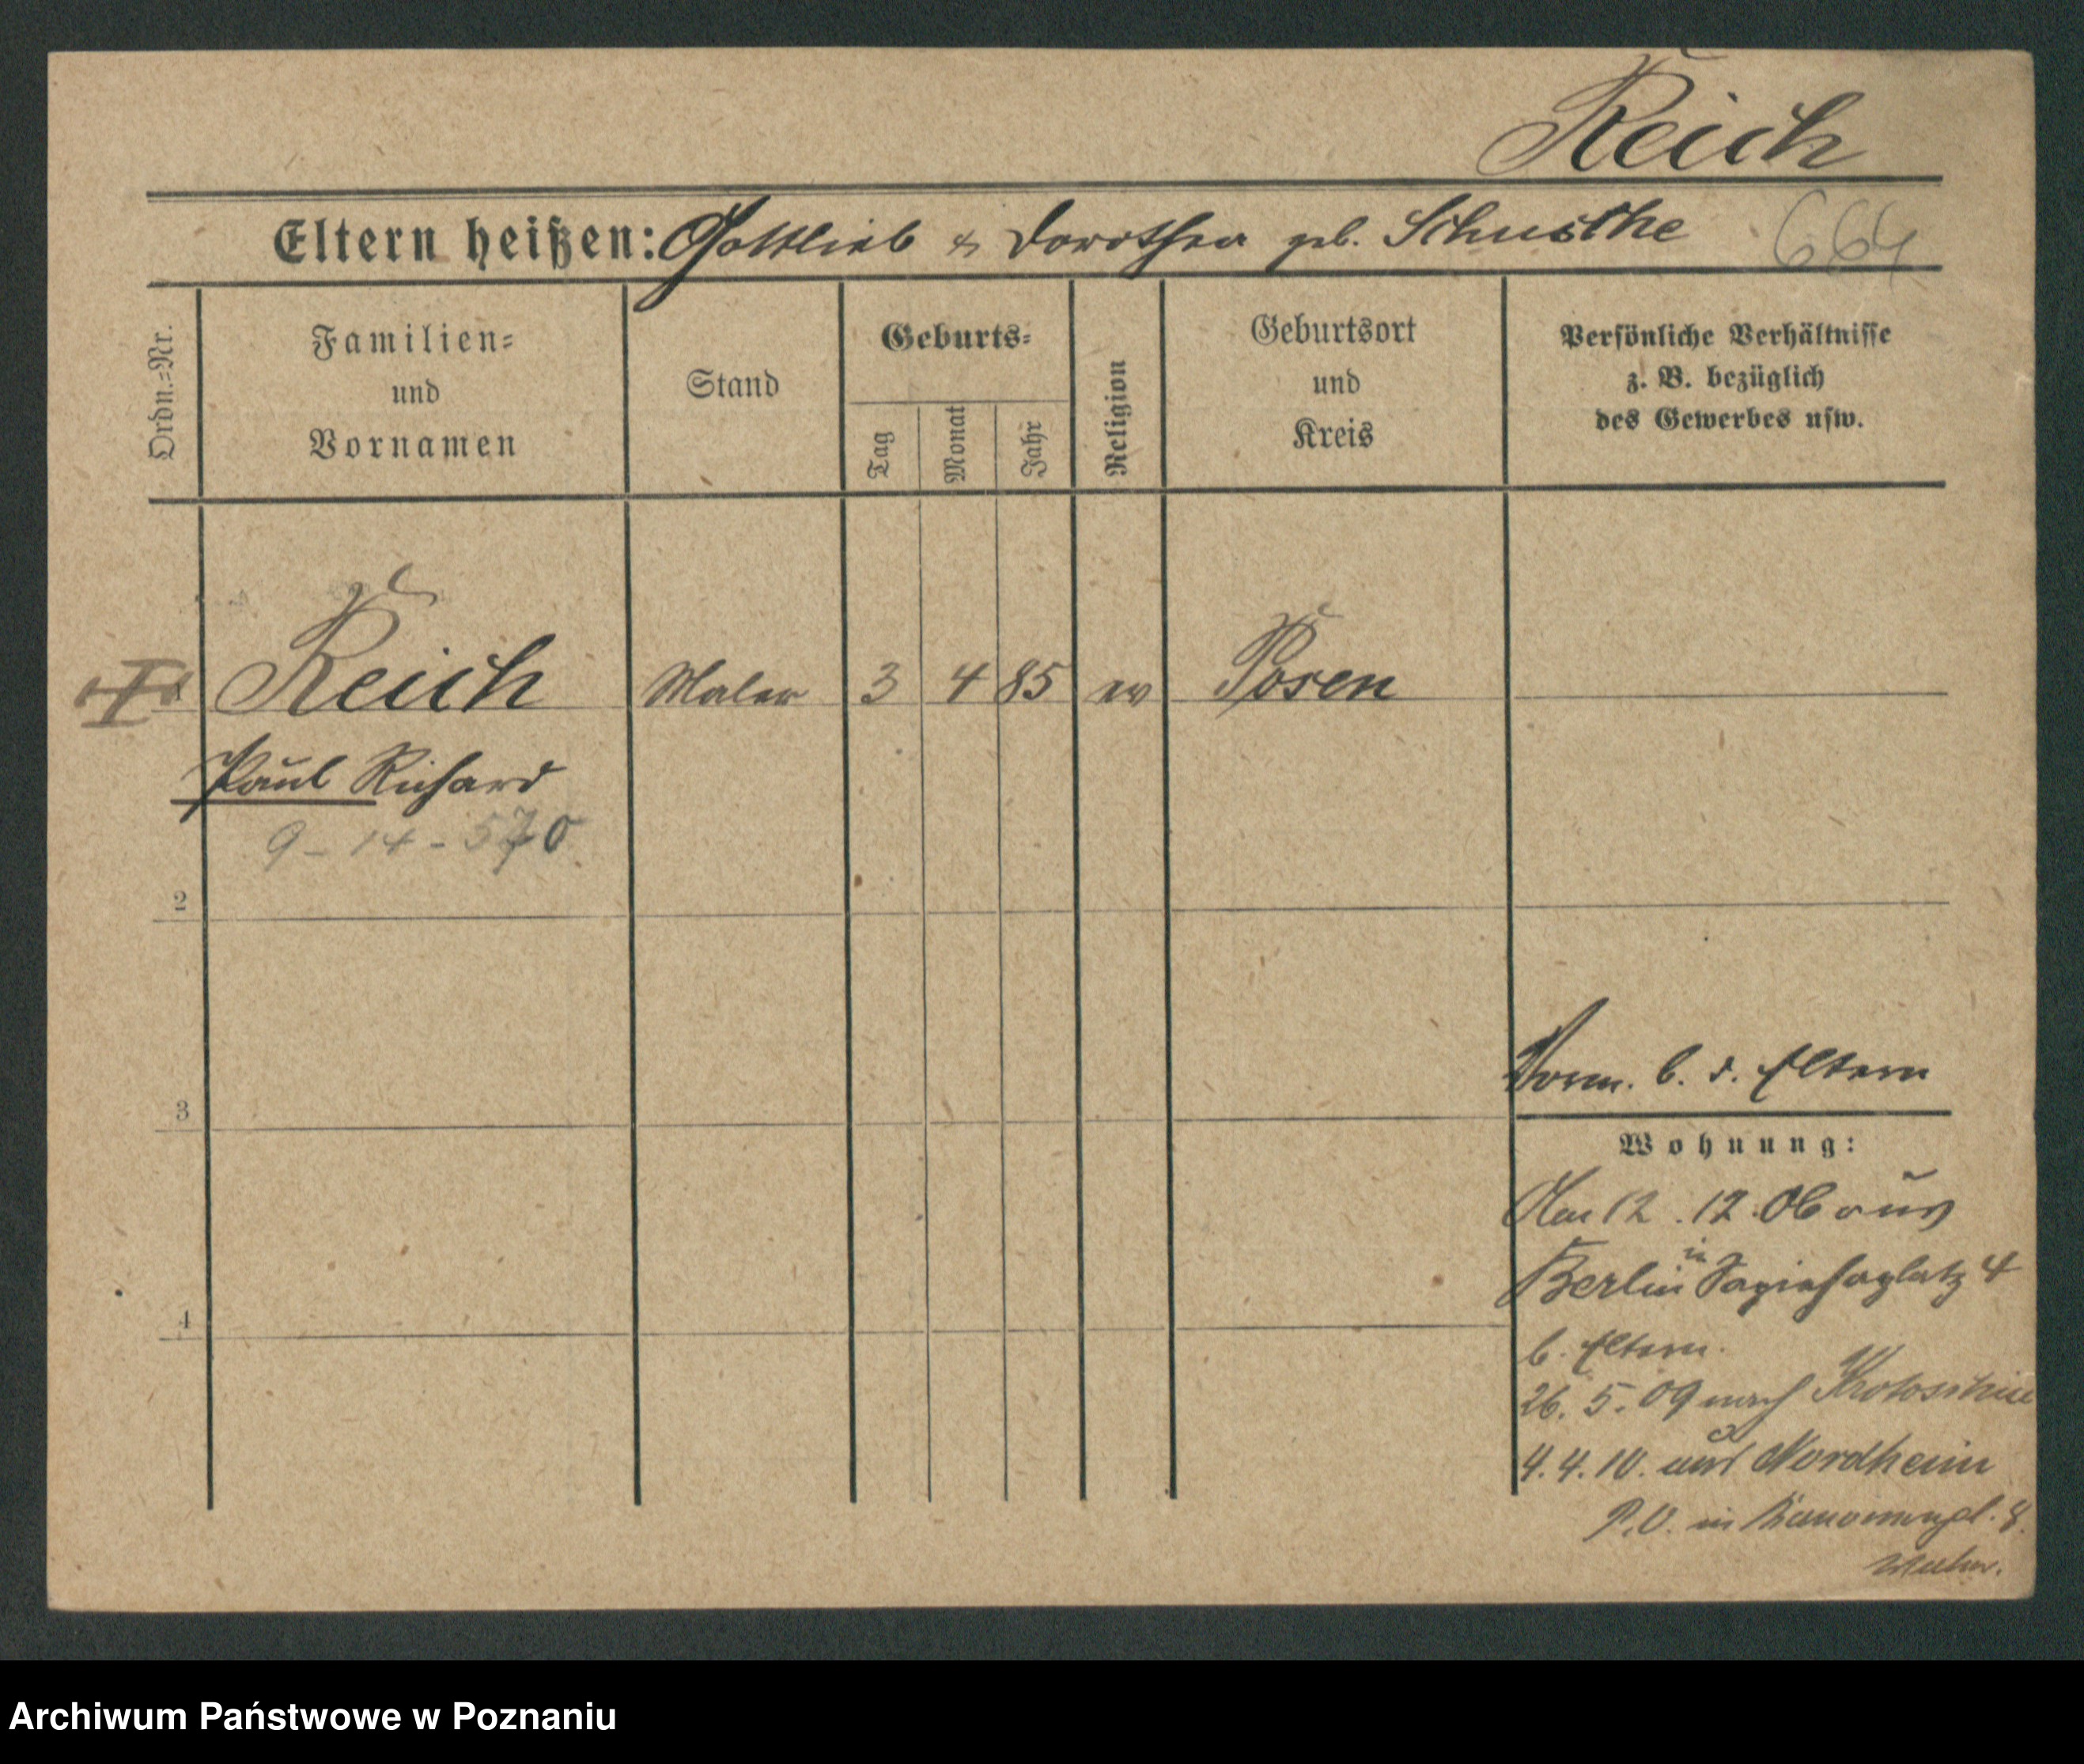 Reich
Eltern heißen: Gottlieb & Dorothea geb. Schusthe
664
Ordn.=Nr.
Familien=
und
Vornamen
Stand
Geburts=
Tag
Monat
Jahr
Religion
Geburtsort
und
Kreis
Persönliche Verhältnisse
z. B. bezüglich
des Gewerbes usw.
Reich Maler 3 4 85 ev Posen
Paul Richard
9 - 14 - 570
2
3
4
Vorm. b. d. Eltern
Wohnung:
Am 12. 12. 06 aus
Berlin in Sapiehaplatz 4
b. Eltern.
26. 5. 09 nach Krotoschin
4. 4. 10. aus Nordheim
P. O. in
Archiwum Państwowe w Poznaniu